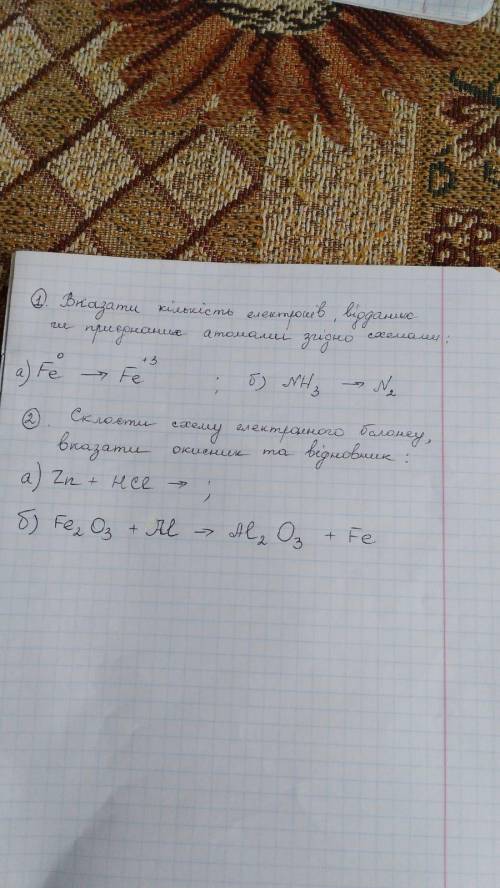 1. Вказати кількість електронів, відданих
чи приєднаних атомами згідно схемами:
а) Fe⁰ → Fe⁺³ ; б) NH₃ → N₂
2. Скласти схему електронного балансу,
вказати окисник та відновник:
а) Zn + HCl → ;
б) Fe₂O₃ + Al → Al₂O₃ + Fe